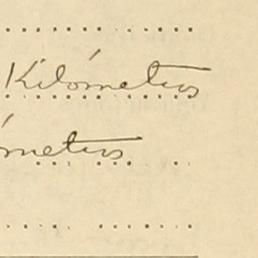 Kilómetros
ómetros